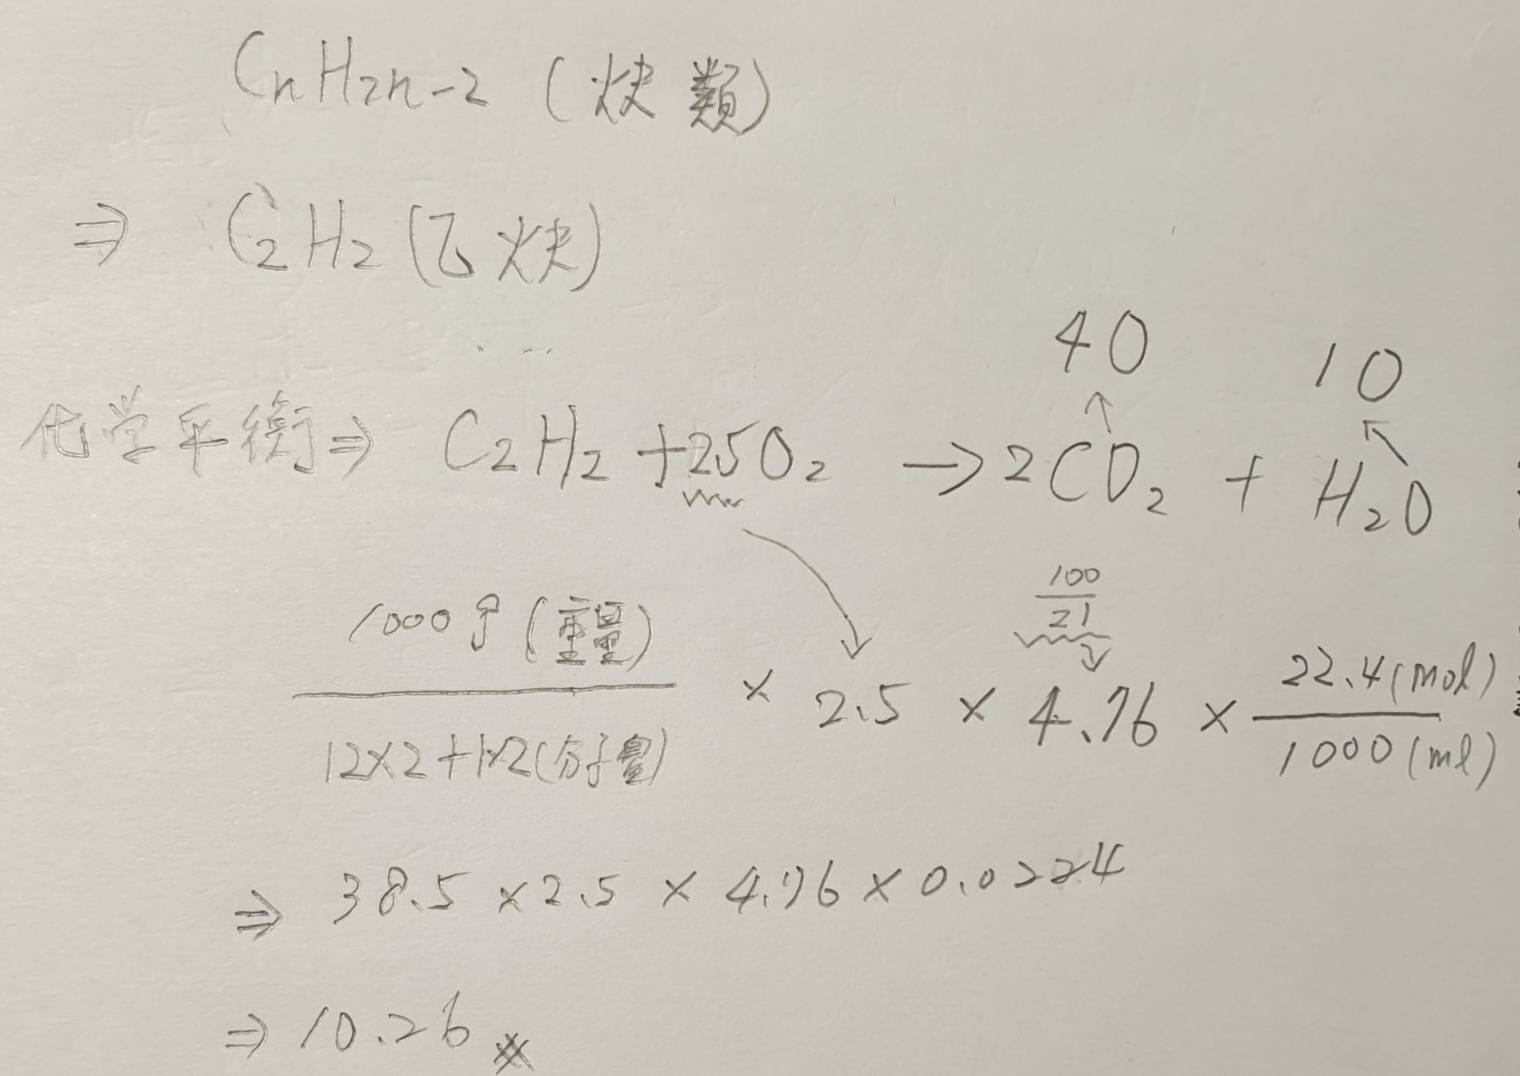 CnH2n-2 (炔類)
⇒ C2H2 (乙炔)
4O 1O
化学平衡⇒ C2H2 + 2.5O2 → 2CO2 + H2O
100/21
1000g (重量) / 12×2+1×2(分子量) × 2.5 × 4.76 × 22.4(mol) / 1000(ml)
⇒ 38.5 × 2.5 × 4.76 × 0.0224
⇒ 10.26